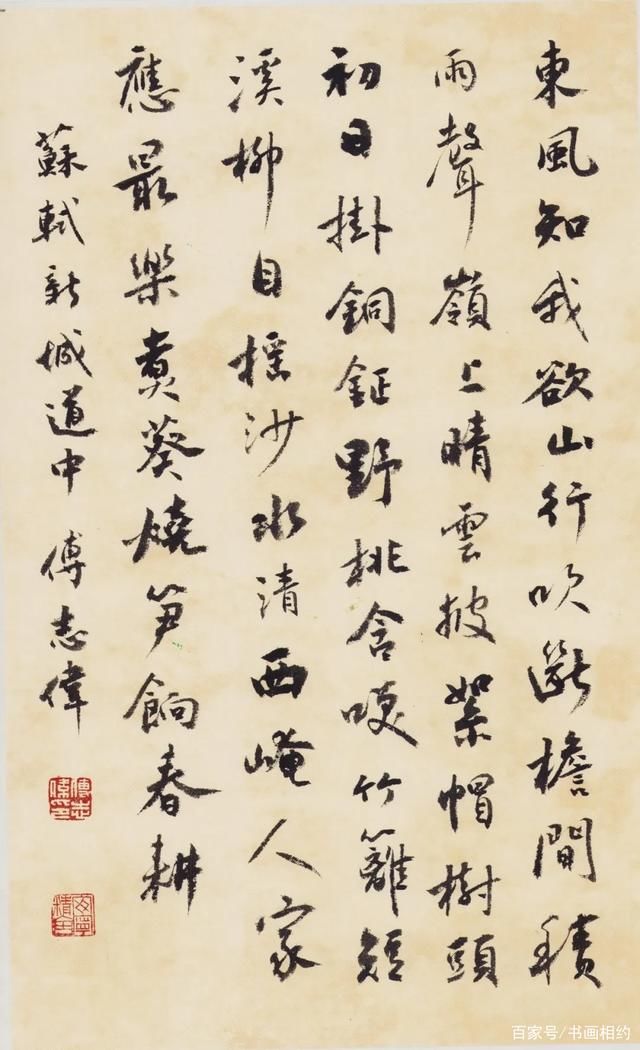 東風知我欲山行吹斷檐間積
雨聲嶺上晴雲披絮帽樹頭
初日掛銅鉦野桃含咲竹籬短
溪柳自摇沙水清西崦人家
應最樂煑葵燒笋餉春耕
蘇軾新城道中 傅志偉
傅志偉印
百家号/书画相约